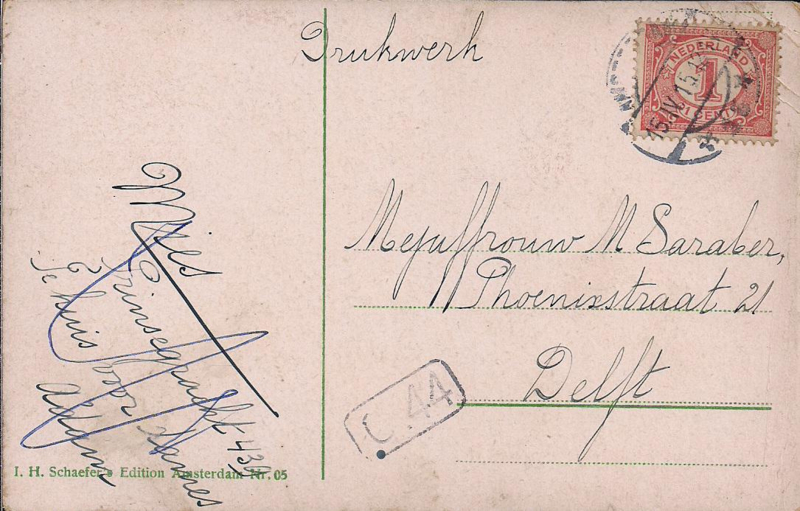 Drukwerk
NEDERLAND
1
CENT
15.IV.15.
Mejuffrouw M Saraber,
Phoenixstraat 21
Delft
C.44
Prinsegracht 437
Te huis voor
Adam
I. H. Schaefer's Edition Amsterdam Nr. 05